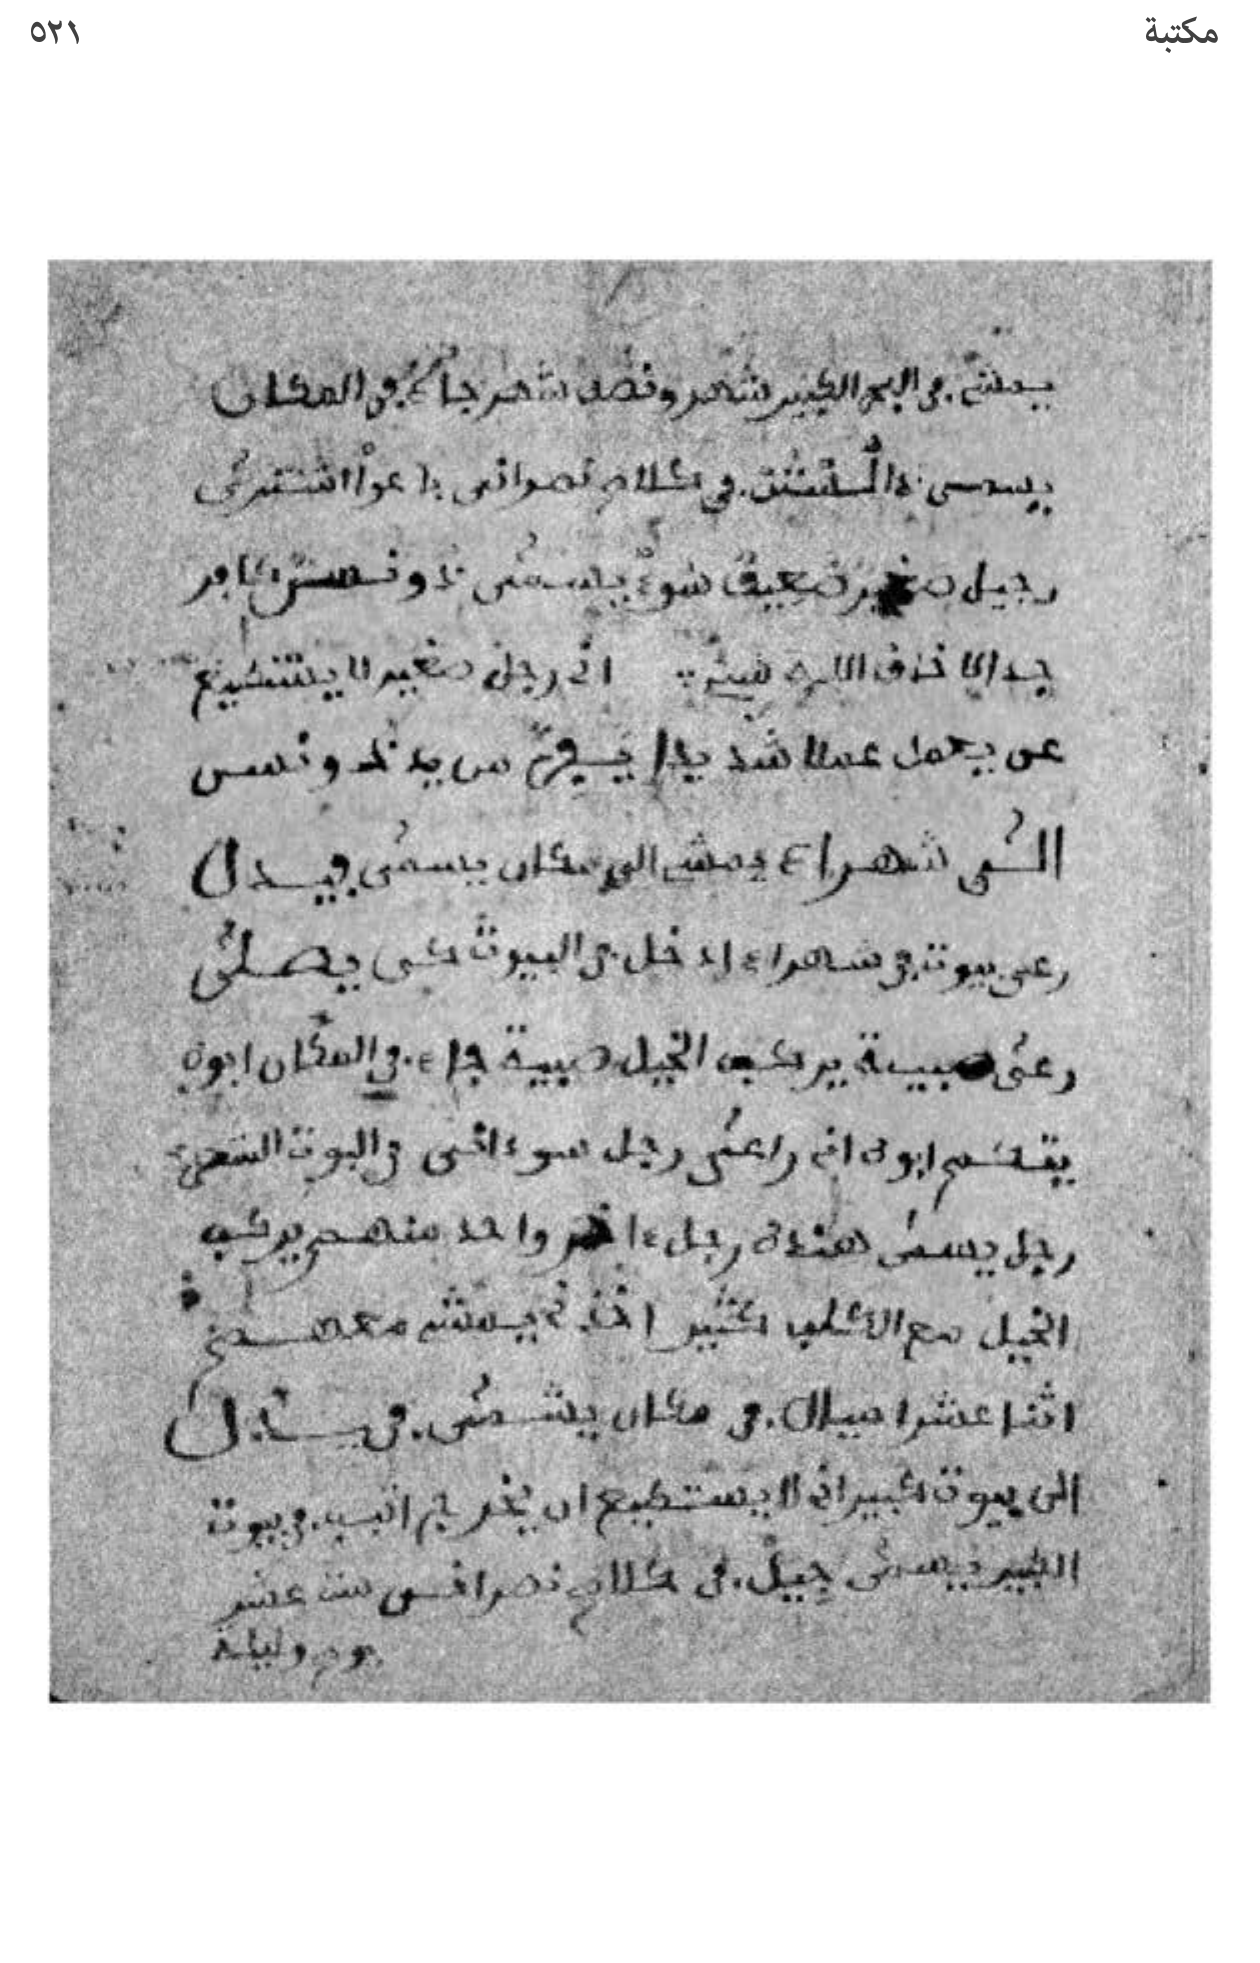 مكتبة ٥٢١
يمشي في البحر الكبير شهر ونصف شهر جاء في المكان
يسمى في كلام نصراني باعوا اشترى
رجيل صغير ضعيف سوء يسمى كافر
جدا لا خاف الله شيء اني رجل صغير لا يستطيع
عن يعمل عملا شديدا من يد
الى شهراء يمشي الى مكان يسمى فيدل
رعى بيوت في شهراء ادخل في البيوت كى يصلى
رعى صبية يركب الخيل صبية جاء في المكان ابوه
ابوه انه راعى رجل سوء في البيوت
رجل يسمى هنده رجل ءاخر واحد منهم يركب
الخيل مع الكلب كثير اخذ يمشي معهم
اثنا عشرا ميلا في مكان يسمى فيدل
الى بيوت كبير اني لا يستطيع ان يخرج في بيوت
الكبير يسمى جيل في كلام نصراني ست عشر
يوم وليلة